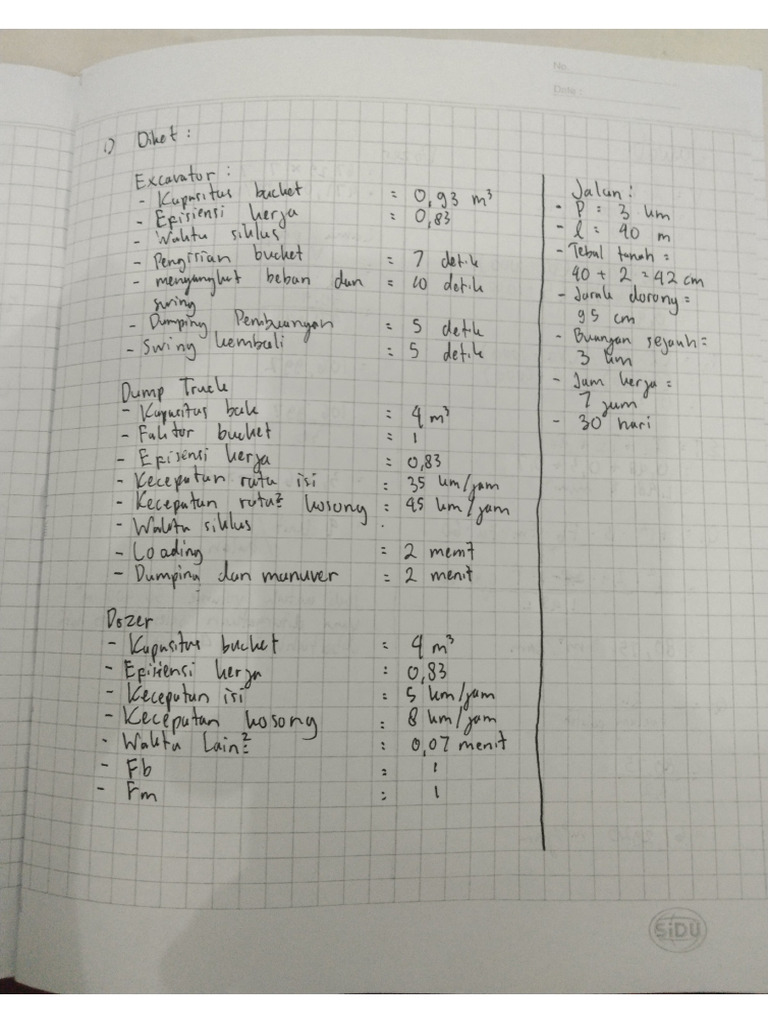 No.
Date :
1) Diket :
Excavator :
- Kapasitas bucket = 0,93 m³
- Efisiensi kerja = 0,83
- Waktu siklus
- Pengisian bucket = 7 detik
- mengangkut beban dan = 10 detik
swing
- Dumping Pembuangan = 5 detik
- Swing kembali = 5 detik
Dump Truck
- Kapasitas bak = 4 m³
- Faktor bucket = 1
- Efisiensi kerja = 0,83
- Kecepatan rata isi = 35 km/jam
- Kecepatan rata² kosong = 45 km/jam
- Waktu siklus
- Loading = 2 menit
- Dumping dan manuver = 2 menit
Dozer
- Kapasitas bucket = 4 m³
- Efisiensi kerja : 0,83
- Kecepatan isi = 5 km/jam
- Kecepatan kosong = 8 km/jam
- Waktu lain² : 0,07 menit
- Fb = 1
- Fm = 1
Jalan :
- P = 3 km
- l = 40 m
- Tebal tanah =
40 + 2 = 42 cm
- Jarak dorong =
45 cm
- Buangan sejauh =
3 km
- Jam kerja =
7 jam
- 30 hari
SiDU